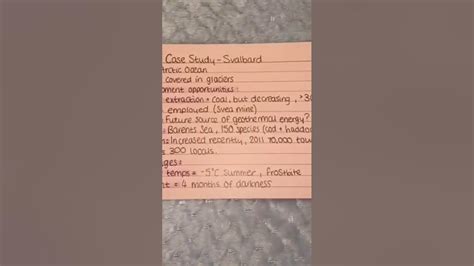 Case Study - Svalbard
Arctic Ocean
covered in glaciers
opment opportunities:
extraction = Coal, but decreasing, >30
employed (Svea mine)
= Future source of geothermal energy?
= Barents Sea, 150 species (cod + haddoc
= Increased recently, 2011 70,000 tou
300 locals.
ges =
temps = -5°C summer, frostbite
t = 4 months of darkness